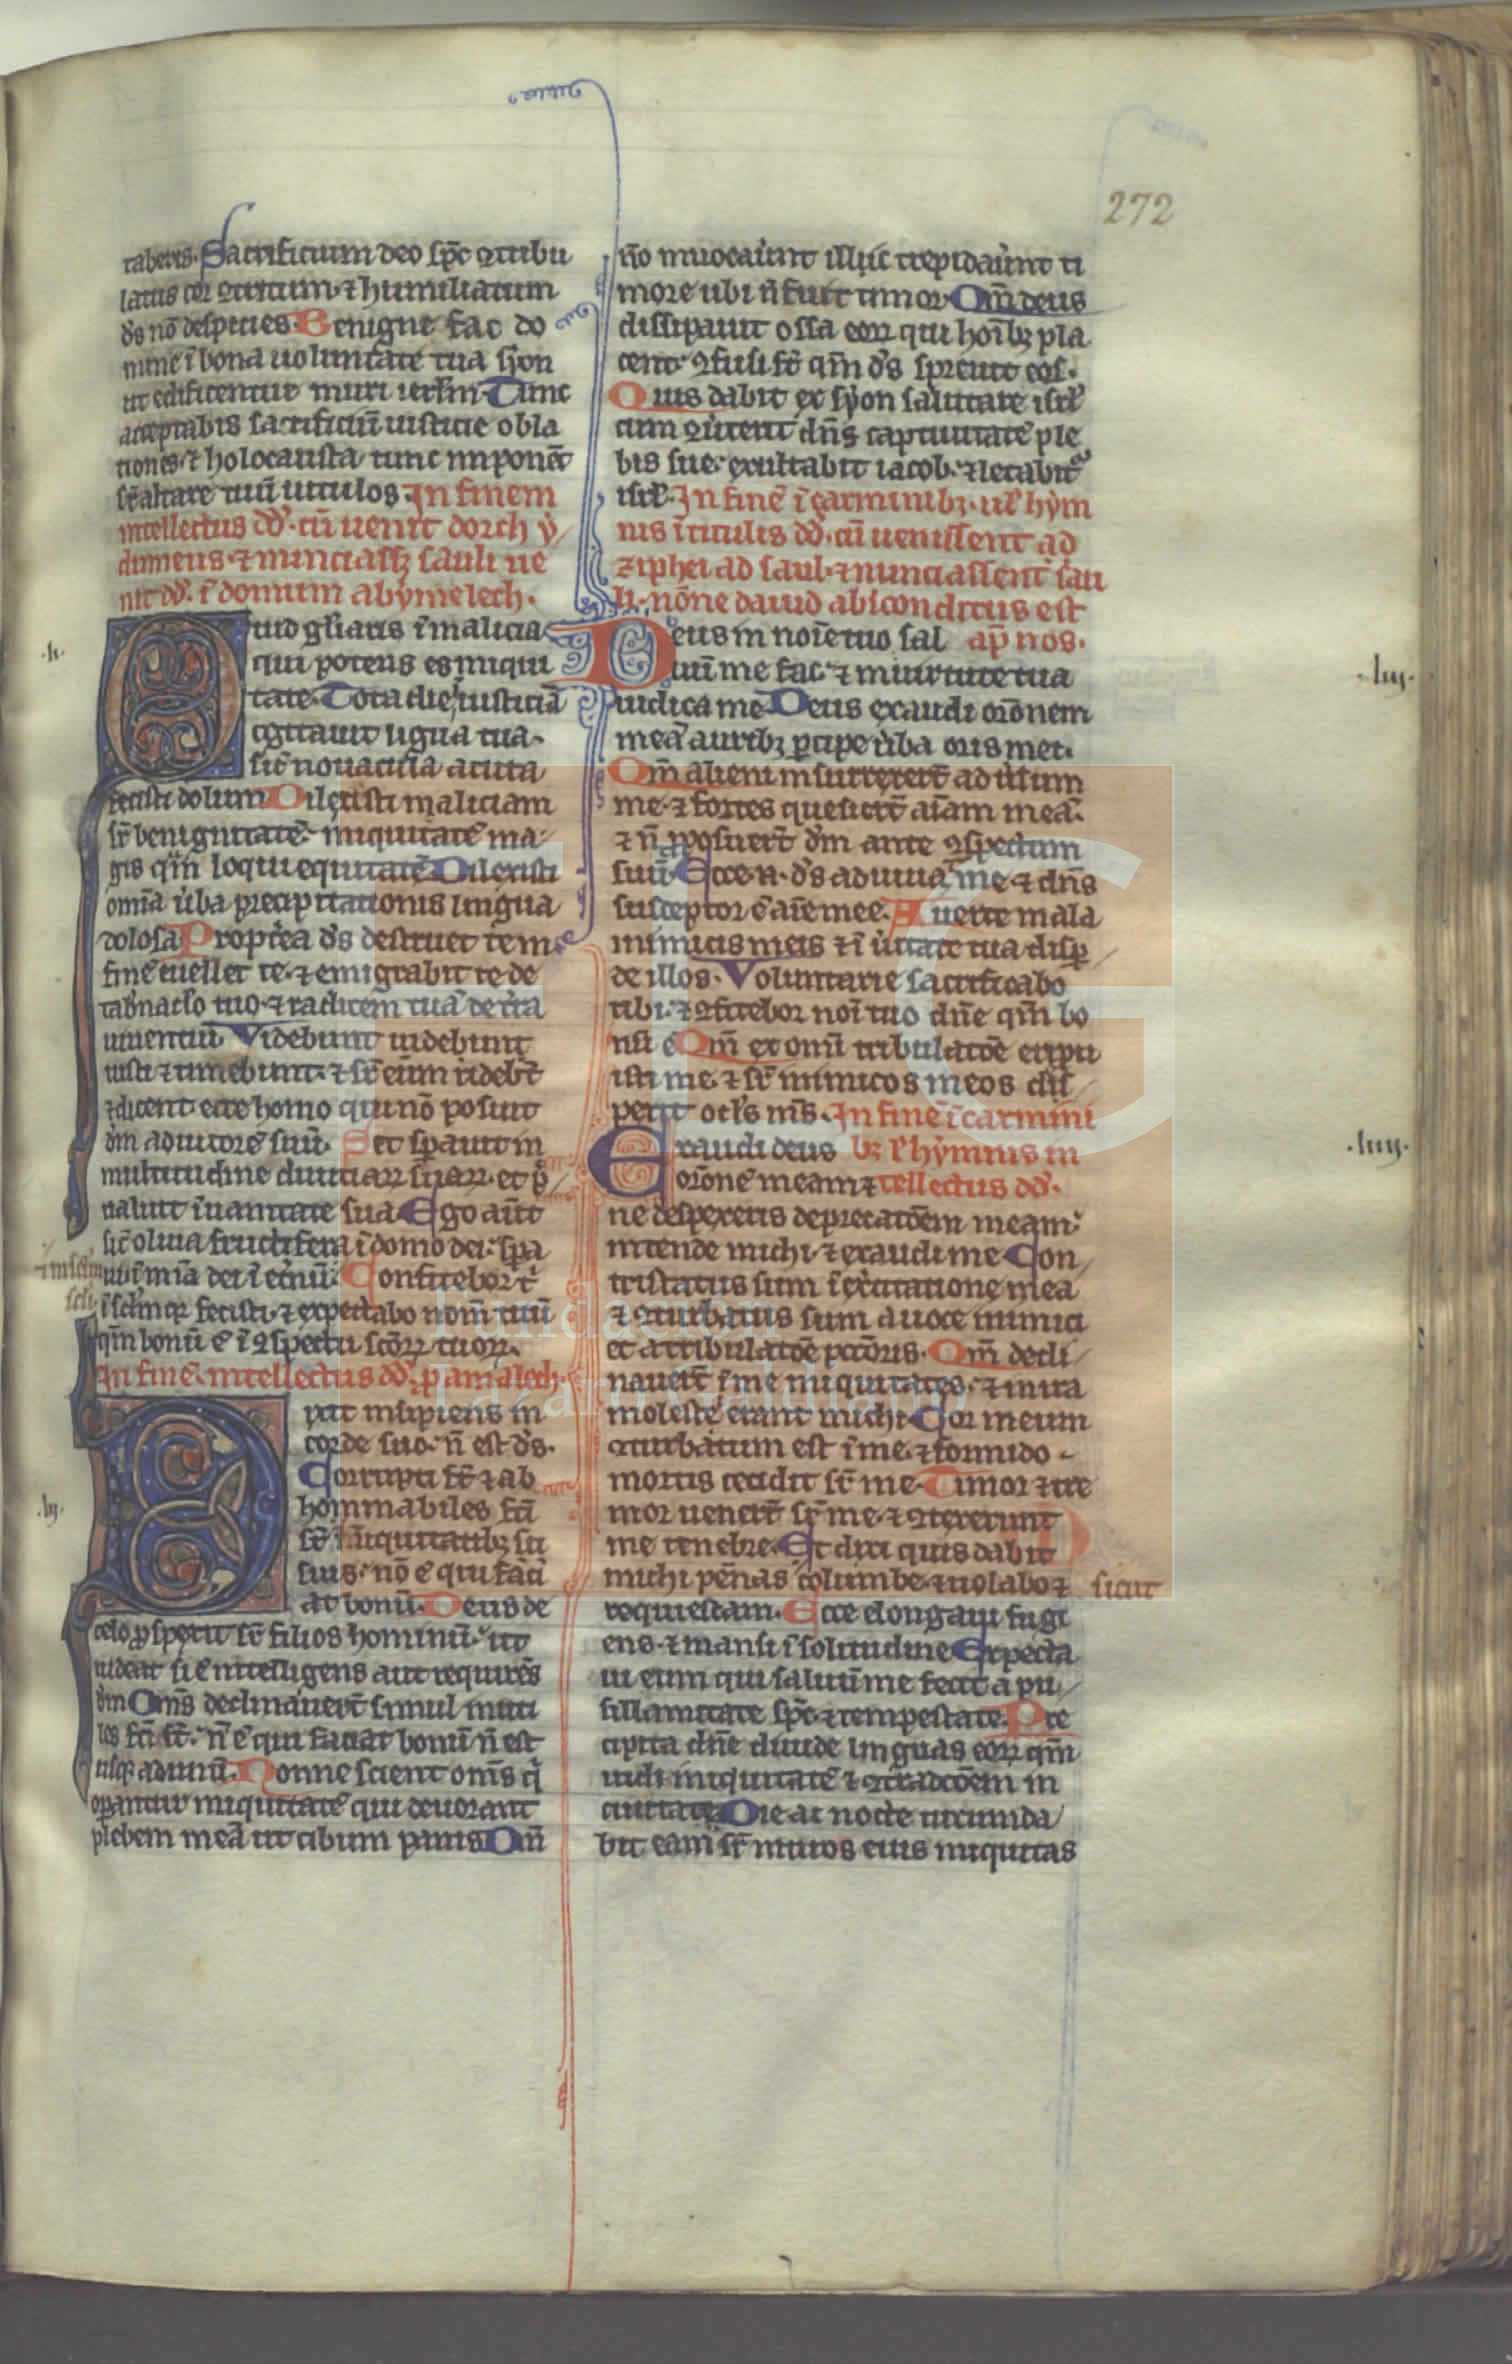 272
taberis. Sacrificium deo sp̄c ꝯtribu
latus cor ꝯtritum ⁊ humiliatum
ds̄ nō despicies. Benigne fac do
mine ī bona uoluntate tua syon
ut edificentur muri ierl̄m. Tunc
acceptabis sacrificiū iusticie obla
tiones ⁊ holocausta tunc inponēt
sr̄ altare tuū uitulos. In finem
intellectus dd̄. cū uenit doech y
dumeus ⁊ nunciassꝫ sauli ue
nit dd̄. ī domum abymelech.
Quid gl̄iaris ī malicia
qui potens es iniqui
tate. Tota die iusticiā
cgitauit ligua tua.
sic̄ nouacula acuta
fecisti dolum Dilexisti maliciam
sr̄ benignitatē. iniquitatē ma
gis qm̄ loqui equitatē Dilexisti
om̄ia ūba precipitationis lingua
dolosa Propt̄ea ds̄ destruet te in
finē euellet te ⁊ emigrabit te de
tab̄nacl̄o tuo ⁊ radicem tuā de t̄ra
uiuentiū Videbunt uidebunt
iusti ⁊ timebunt. ⁊ sr̄ eum rideb̄t
⁊ dicent ecce homo qui nō posuit
dm̄ adiutorē suū. Set sp̄auit in
multitudine diuitiaꝝ suaꝝ. et p̄
ualuit ī uanitate sua Ego aūt
sic̄ oliua fructifera ī domo dei. sp̄a
ui ī mīa dei ī et̄nū. Confitebor t̄
ī sc̄lm qr fecisti. ⁊ expectabo nom̄ tuū
qm̄ bonū ē ī ꝯspectu sc̄oꝝ tuoꝝ.
In finē. intellectus dd̄. p amalech.
Dixit insipiens in
corde suo. n̄ est ds̄.
Corrupti st̄ ⁊ ab
hominabiles fc̄i
st̄ ī iniquitatibꝫ su
suis. nō ē qui faci
at bonū. Deus de
celo p̱spexit sr̄ filios hominū. ut
uideat si ē intelligens aut requirēs
dm̄ Om̄s declinauer̄t simul inuti
les fc̄i st̄. n̄ ē qui faciat bonū n̄ est
usqꝫ ad unū. Nonne scient om̄s q̄
opantur iniquitatē qui deuorant
plebem meā ut cibum panis Dm̄
n̄o inuocauūnt illuc trepidauūnt ti
more ubi n̄ fuit timor. Qm̄ deus
dissipauit ossa eoꝝ qui hoībꝫ pla
cent. ꝯfusi st̄ qm̄ ds̄ spreuit eos.
Quis dabit ex syon salutare isrl̄
cum ꝯūtent dn̄s captiuitatē ple
bis sue. exultabit iacob. ⁊ letabit
isrl̄. In finē ī carminibꝫ. ul̄ hym
nis ītitulis dd̄. cū uenissent ad
ziphei ad saul. ⁊ nunciassent sau
li. nōne dauid absconditus est
Deus in noīe tuo sal ap̄ nos.
uū me fac ⁊ in uirtute tua
iudica mē Deus exaudi orōnem
meā aurībꝫ p̱cipe ūba oris mei.
Qm̄ alieni insurrexer̄t aduersum
me ⁊ fortes quesier̄t aīam meā.
⁊ n̄ p̱posuer̄t dm̄ ante ꝯspectum
suū. Ecce n. ds̄ adiuua me ⁊ dn̄s
susceptor ē aīe mee. Auerte mala
inimicis meis ⁊ ī ūitate tua disp̱
de illos. Voluntarie sacrificabo
tibi. ⁊ ꝯfitebor noī tuo dn̄e qm̄ bo
nū ē Qm̄ ex omī tribulatōe eripu
isti me. ⁊ sr̄ inimicos meos dis
pexit ocl̄s ms̄. In finē ī carmini
Exaudi deus bꝫ l̄ hymnis in
orōnē meam ⁊ tellectus dd̄.
ne despexeris deprecatōem meam
intende michi. ⁊ exaudi me Con
tristatus sum ī exc̄itatione mea
⁊ ꝯturbatus sum a uoce inimici
et a tribulatōe pct̄oris. Qm̄ decli
nauer̄t ī me iniquitates. ⁊ in ira
moleste erant michi Cor meum
ꝯturbatum est ī me. ⁊ formido
mortis cecidit sr̄ me. Timor ⁊ tre
mor uener̄t sr̄ me. ⁊ ꝯtexerunt
me tenebre. Et dixi quis dabit
michi pēnas columbe ⁊ uolabo ⁊ sicut
requiescam. Ecce elongaui fugi
ens. ⁊ mansi ī solitudine Expecta
ui eum qui saluū me fecit a pu
sillanimitate sp̄c ⁊ tempestate. Pre
cipita dn̄e diuide linguas eoꝝ qm̄
uidi iniquitatē ⁊ ꝯtradc̄oēm in
ciuitate Die ac nocte circumda
bit eam sr̄ muros eius iniquitas
Fundación
Lázaro Galdiano